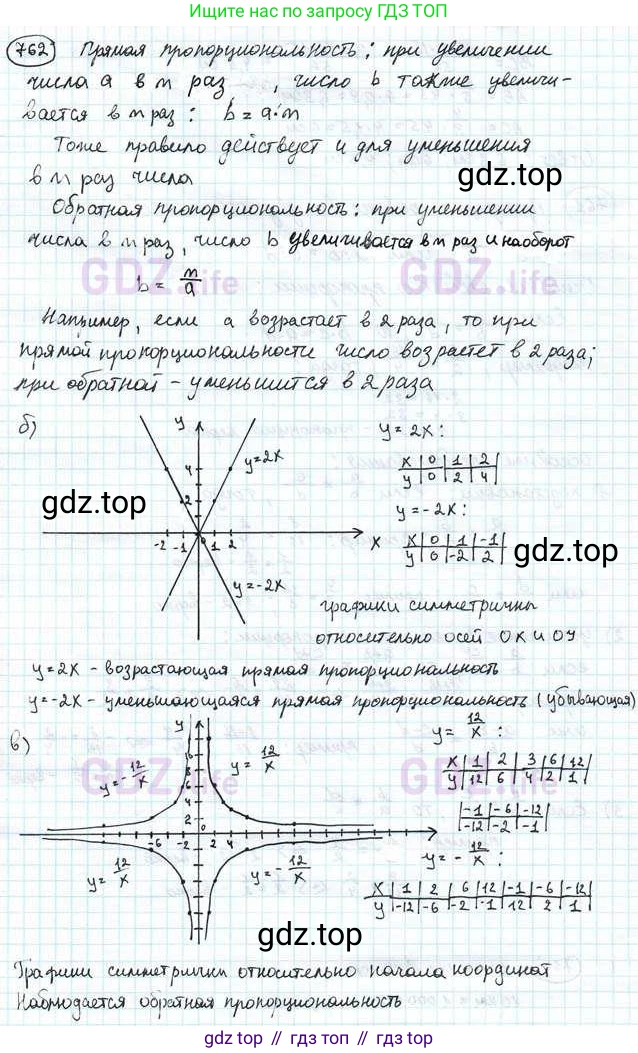 Присоединяйтесь на запрос по поиску ГДЗ ТОП
762 Прямая пропорциональность: при увеличении
числа a в m раз, число b также увеличи-
вается в m раз: b = a·m
Тоже правило действует и для уменьшения
в m раз числа
gdz.top
Обратная пропорциональность: при уменьшении
числа в m раз, число b увеличивается в m раз и наоборот
GDZ.life GDZ.life
b = m/a
Например, если a возрастает в 2 раза, то при
прямой пропорциональности число возрастет в 2 раза;
при обратной - уменьшится в 2 раза
б) y y = 2x:
y=2x
x | 0 | 1 | 2
y | 0 | 2 | 4
4
2
gdz.top
y = -2x:
-2 -1 0 1 2 x
x | 0 | 1 | -1
y | 0 | -2 | 2
gdz.top
y=-2x
графики симметричны
относительно осей OX и OY
y=2x - возрастающая прямая пропорциональность
y=-2x - уменьшающаяся прямая пропорциональность (убывающая)
в) y y = 12/x:
y=-12/x y=12/x
x | 1 | 2 | 3 | 6 | 12
y | 12 | 6 | 4 | 2 | 1
GDZ.life GDZ.life
-1 | -6 | -12
-12 | -2 | -1
6
4
2
-6 -2 0 2 4 6
y = -12/x:
y=12/x y=-12/x
x | 1 | 2 | 6 | 12 | -1 | -6 | -12
y | -12 | -6 | -2 | -1 | 12 | 2 | 1
gdz.top
Графики симметричны относительно начала координат
Наблюдается обратная пропорциональность
gdz.top // гдз топ // gdz.top